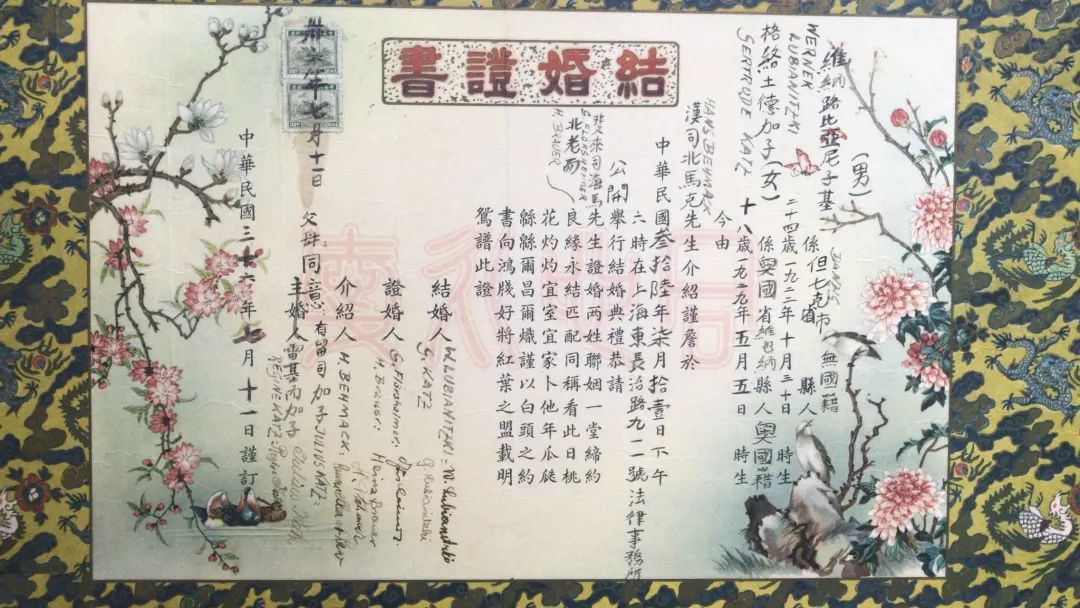 結婚證書
維納路比亞尼子基
WERNER
LUBIANITZKI
(男)
係但七克市
DANZIG
縣人
無國籍
二十四歲一九二二年十月三十日 時生
格絡土德加子(女)
GERTRUDE KATZ
係奧國省維也納縣人奧國籍
十八歲一九二九年五月五日 時生
今由
漢司北馬克先生介紹謹詹於
HANS BEHMACK
中華民國叁拾陸年柒月拾壹日下午
六時在上海東長治路九一一號法律事務所
公開舉行結婚典禮恭請
北老而
H. BRAUER
先生證婚两姓聯姻一堂締約
良緣永結匹配同稱看此日桃
花灼灼宜室宜家卜他年瓜瓞
緜緜爾昌爾熾謹以白頭之約
書向鴻牋好將紅葉之盟載明
鴛譜此證
結婚人 W. LUBIANITZKI: W. Lubianitzki
G. KATZ
證婚人
介紹人 H. BEHMACK:
父母同意:
主婚人 有留司加子 JULIUS KATZ:
雷基内加子
REGINE KATZ:
中華民國三十六年七月十一日謹訂
卅六年七月十一日